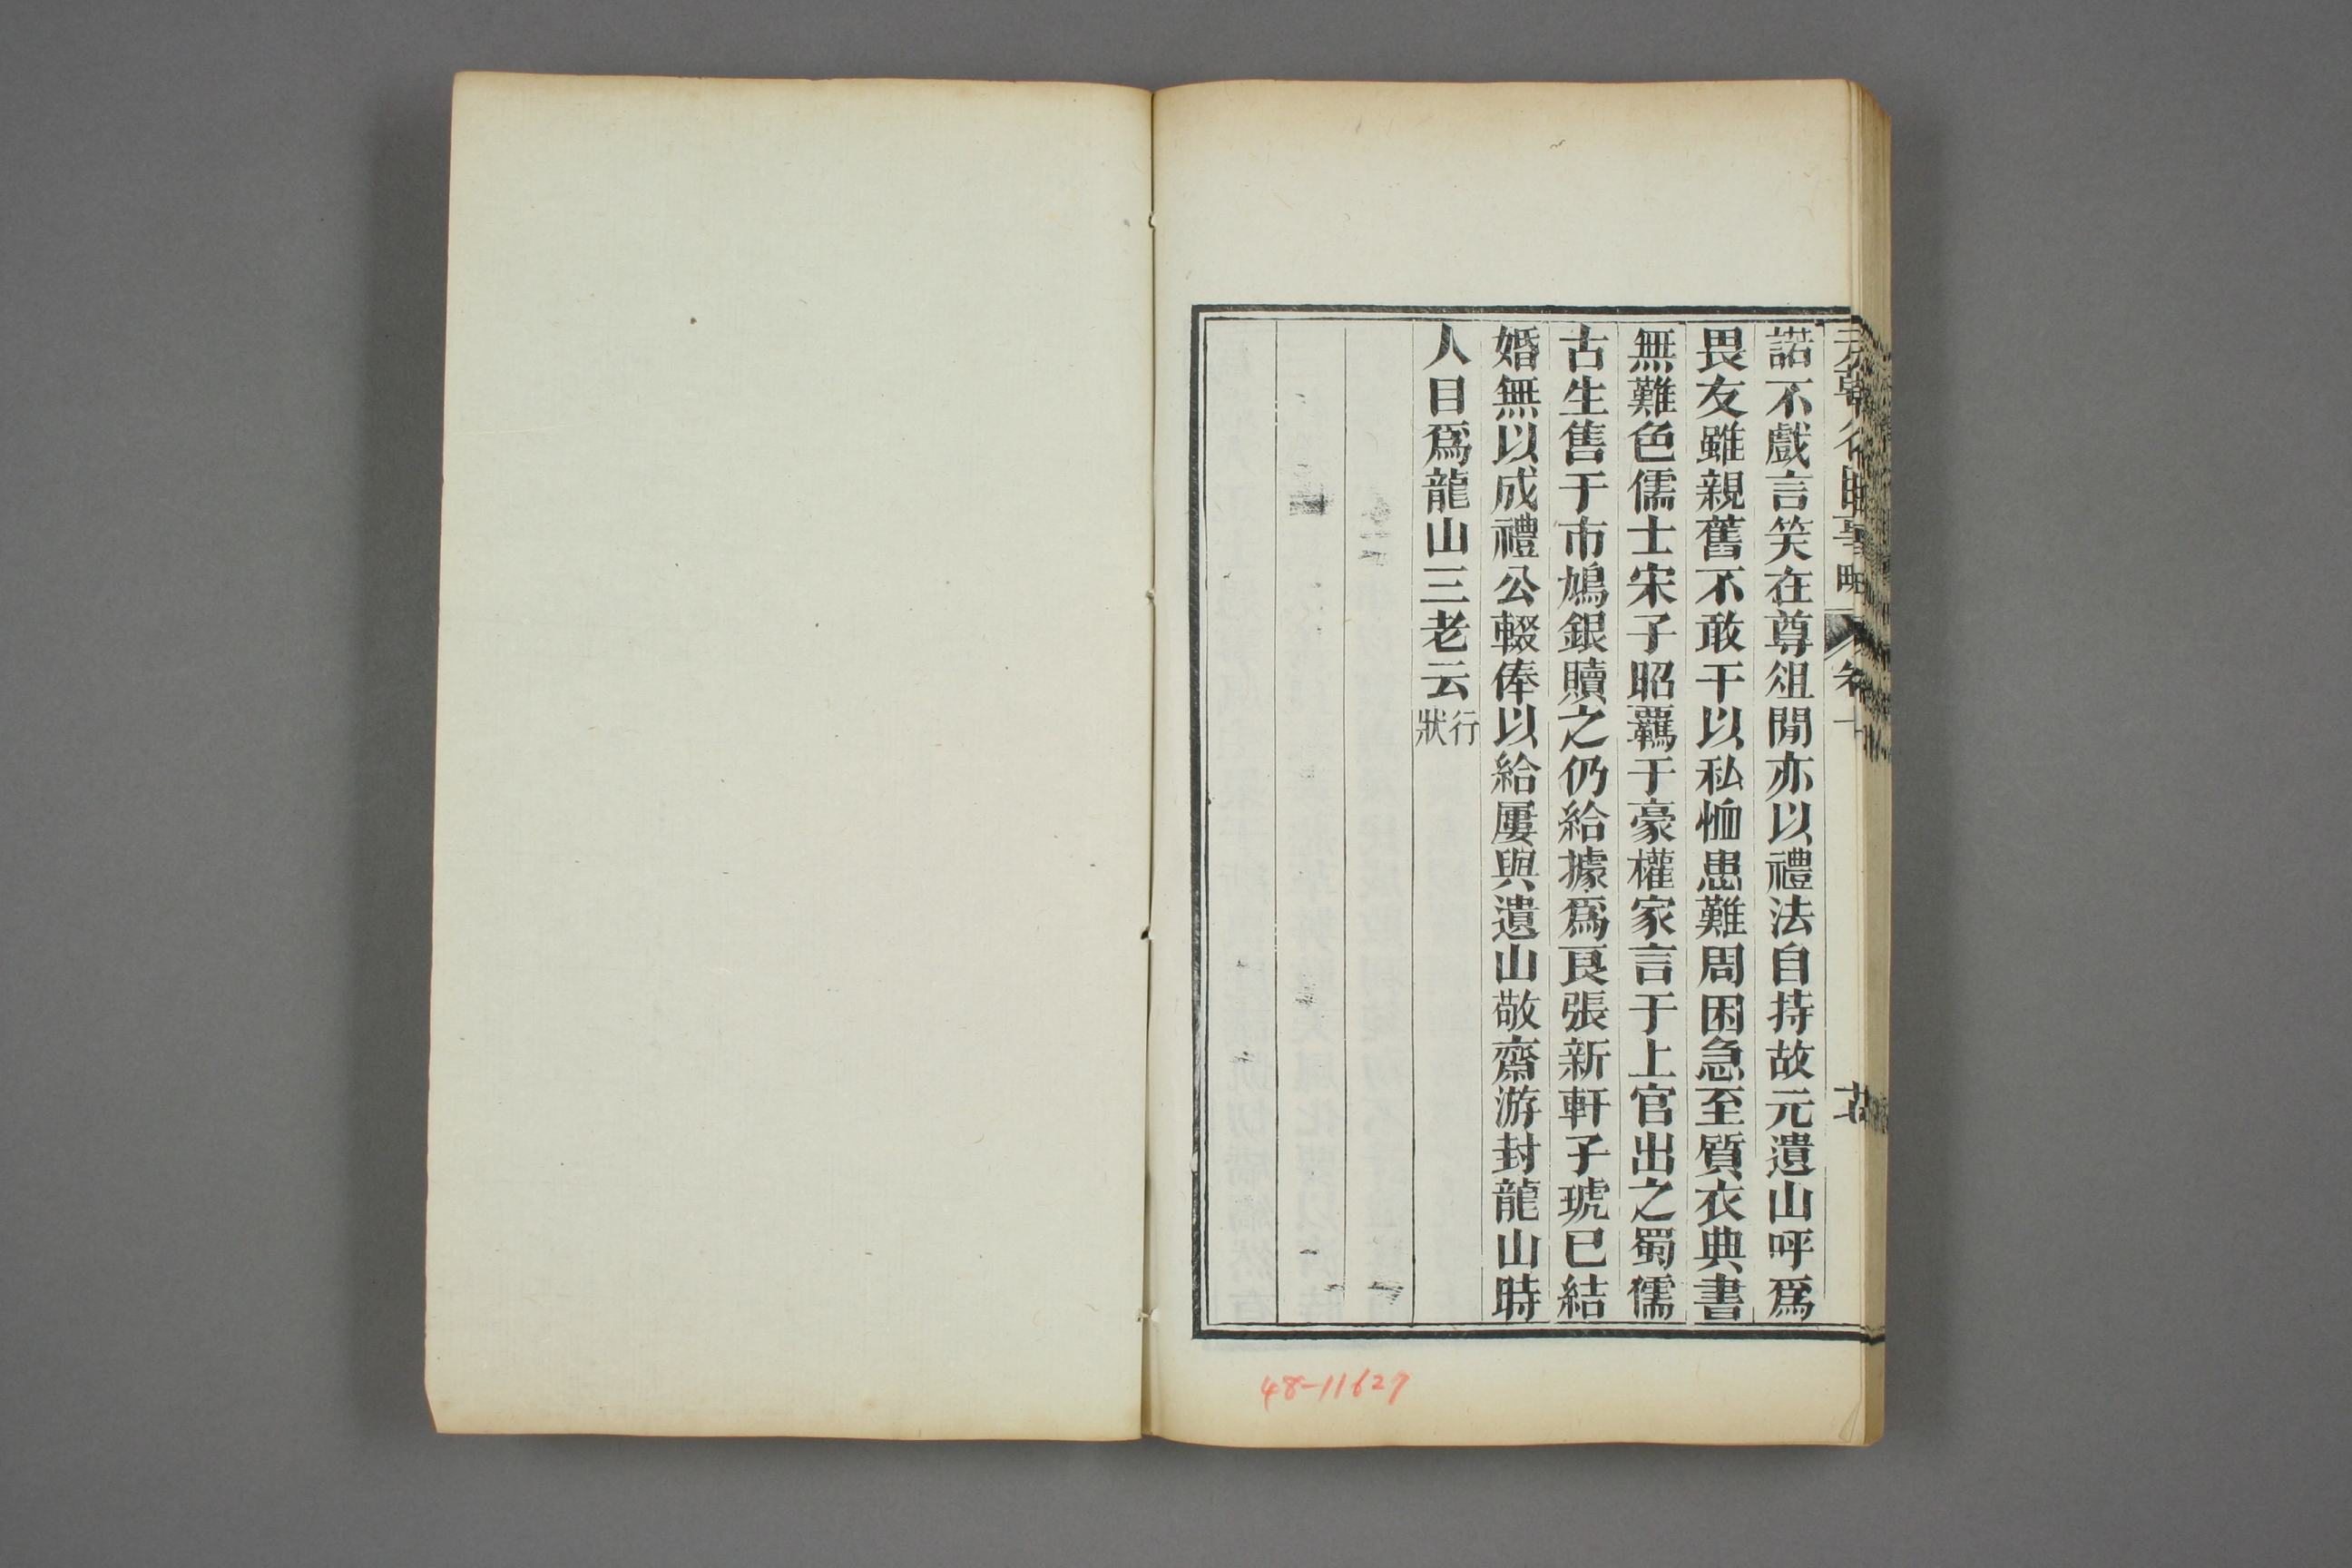 元朝名臣事略 卷十
諾不戲言笑在尊俎閒亦以禮法自持故元遺山呼爲
畏友雖親舊不敢干以私恤患難周困急至質衣典書
無難色儒士宋子昭羈于豪權家言于上官出之蜀儒
古生售于市鳩銀贖之仍給據爲良張新軒子琥已結
婚無以成禮公輟俸以給屢與遺山敬齋游封龍山時
人目爲龍山三老云行狀
48-11627